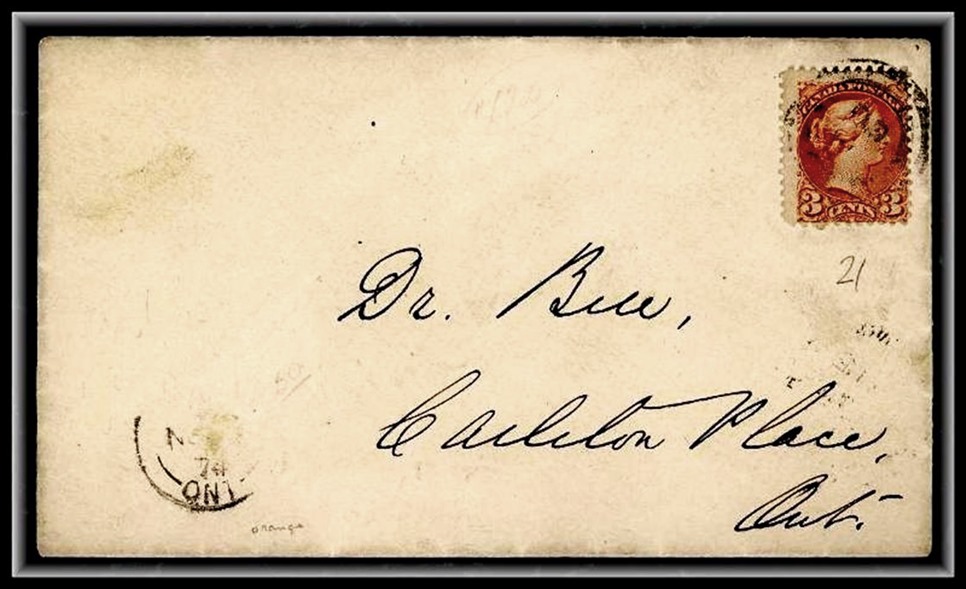 CANADA POSTAGE
3 CENTS 3
21
Dr. Bell,
Carleton Place,
Ont.
N
74
ONT
orange